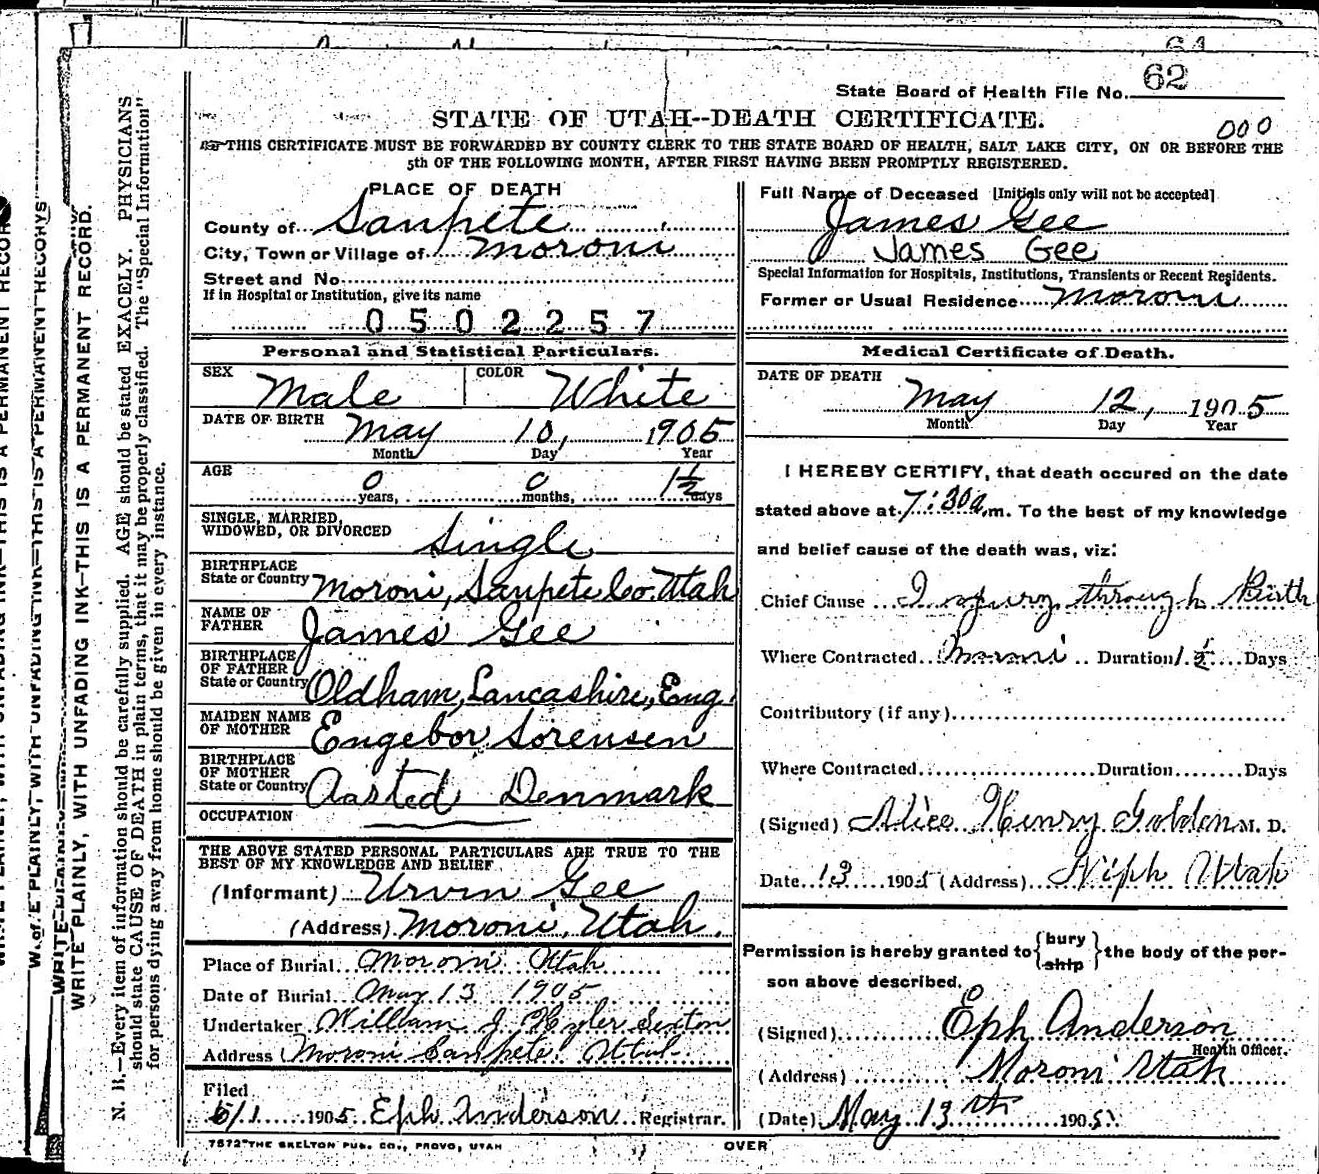 62
State Board of Health File No.
STATE OF UTAH--DEATH CERTIFICATE.
000
THIS CERTIFICATE MUST BE FORWARDED BY COUNTY CLERK TO THE STATE BOARD OF HEALTH, SALT LAKE CITY, ON OR BEFORE THE
5th OF THE FOLLOWING MONTH, AFTER FIRST HAVING BEEN PROMPTLY REGISTERED.
WRITE PLAINLY, WITH UNFADING INK—THIS IS A PERMANENT RECORD.
N. B.—Every item of information should be carefully supplied. AGE should be stated EXACELY. PHYSICIANS
should state CAUSE OF DEATH in plain terms, that it may be properly classified. The "Special Information"
for persons dying away from home should be given in every instance.
PLACE OF DEATH
County of Sanpete
City, Town or Village of Moroni
Street and No.
If in Hospital or Institution, give its name
0502257
Personal and Statistical Particulars.
SEX Male COLOR White
DATE OF BIRTH May 10, 1905
Month Day Year
AGE 0 years, 0 months, 1½ days
SINGLE, MARRIED,
WIDOWED, OR DIVORCED Single
BIRTHPLACE
State or Country Moroni, Sanpete Co. Utah
NAME OF
FATHER James Gee
BIRTHPLACE
OF FATHER
State or Country Oldham, Lancashire, Eng.
MAIDEN NAME
OF MOTHER Engebor Sorensen
BIRTHPLACE
OF MOTHER
State or Country Aasted Denmark
OCCUPATION
THE ABOVE STATED PERSONAL PARTICULARS ARE TRUE TO THE
BEST OF MY KNOWLEDGE AND BELIEF
(Informant) Urvin Gee
(Address) Moroni, Utah.
Place of Burial Moroni Utah
Date of Burial May 13 1905
Undertaker William J. Sexton
Address Moroni Sanpete Utah
Filed
5/1 1905 Eph Anderson Registrar.
7572 THE SKELTON PUB. CO., PROVO, UTAH
Full Name of Deceased [Initials only will not be accepted]
James Gee
James Gee
Special Information for Hospitals, Institutions, Transients or Recent Residents.
Former or Usual Residence Moroni
Medical Certificate of Death.
DATE OF DEATH
May 12, 1905
Month Day Year
I HEREBY CERTIFY, that death occured on the date
stated above at 7:30 a.m. To the best of my knowledge
and belief cause of the death was, viz:
Chief Cause Ingury through Birth
Where Contracted Moroni Duration 1½ Days
Contributory (if any)
Where Contracted Duration Days
(Signed) Alice Henry Golden M. D.
Date 13 1905 (Address) Niph Utah
Permission is hereby granted to {bury ship} the body of the per-
son above described.
(Signed) Eph Anderson
Health Officer.
(Address) Moroni Utah
(Date) May 13th 1905
OVER